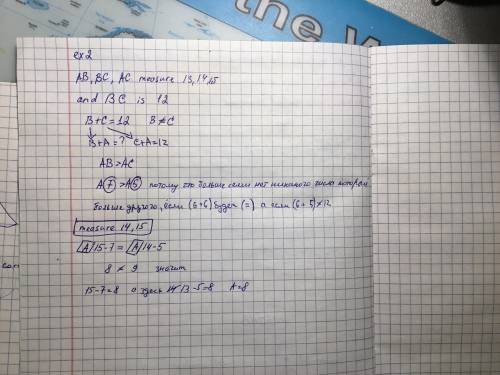 the W
ex 2
AB, BC, AC measure 13, 14, 15
and BC is 12
B+C=12 B≠C
B+A=? C+A=12
AB>AC
A(7)>A(5) потому что больше семи нет никакого числа которое
больше другого, если (6+6) будет (=) а если (6+5)≠12
measure 14, 15
A 15-7= A 14-5
8 ≠ 9 значит
15-7=8 а здесь 13-5=8 A=8